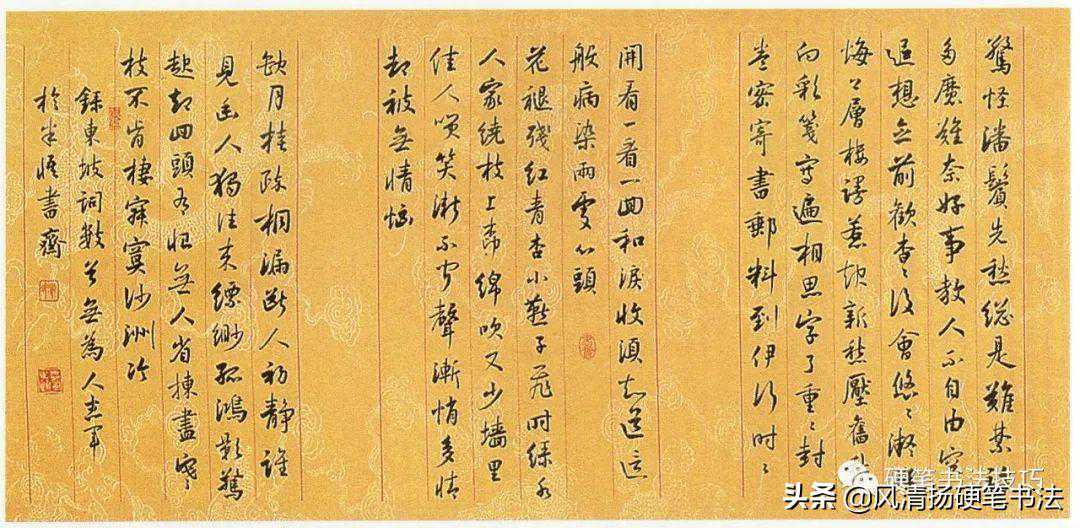 驚怪潘鬢先愁總是難禁
多磨難奈好事教人不自由空
追想念前歡杳杳後會悠悠凝
悔上層樓謾惹起新愁壓舊
向彩箋寫遍相思字了重重封
卷密寄書郵料到伊行時時
開看一看一回和淚收須知道這
般病染兩處心頭
花褪殘紅青杏小燕子飛時綠水
人家繞枝上柳綿吹又少墻里
佳人笑漸不聞聲漸悄多情
却被無情惱
缺月桂疏桐漏斷人初靜誰
見幽人獨往來縹緲孤鴻影驚
起却回頭有恨無人省揀盡寒
枝不肯棲寂寞沙洲冷
錄東坡詞數首無為人
於半悟書齋
硬笔书法技巧
头条 @风清扬硬笔书法